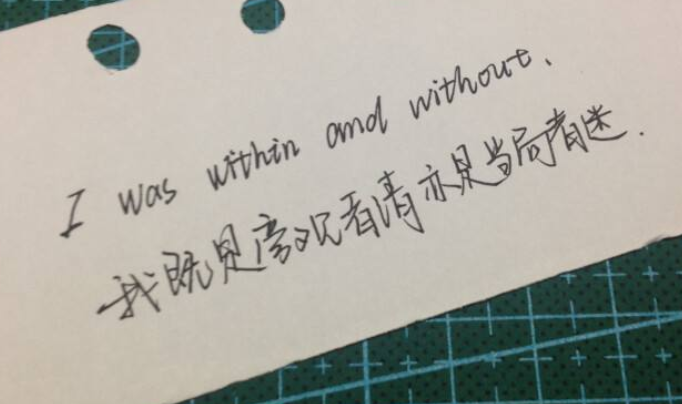 I was within and without.
我既是旁观者清亦是当局者迷.